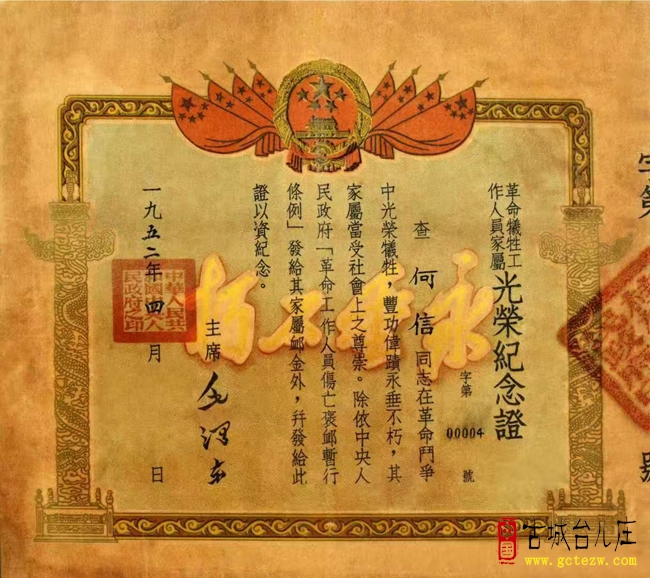 革命犧牲工
作人員家屬
光榮紀念證
字第 00004 號
查 何信 同志在革命鬥爭
中光榮犧牲，豐功偉蹟永垂不朽，其
家屬當受社會上之尊崇。除依中央人
民政府「革命工作人員傷亡褒邺暫行
條例」發給其家屬邺金外，幷發給此
證以資紀念。
主席 毛澤东
一九五二年四月 日
中華人民共
和國中央人
民政府之印
永垂不朽
字第
號
中国
古城台儿庄
www.gctezw.com